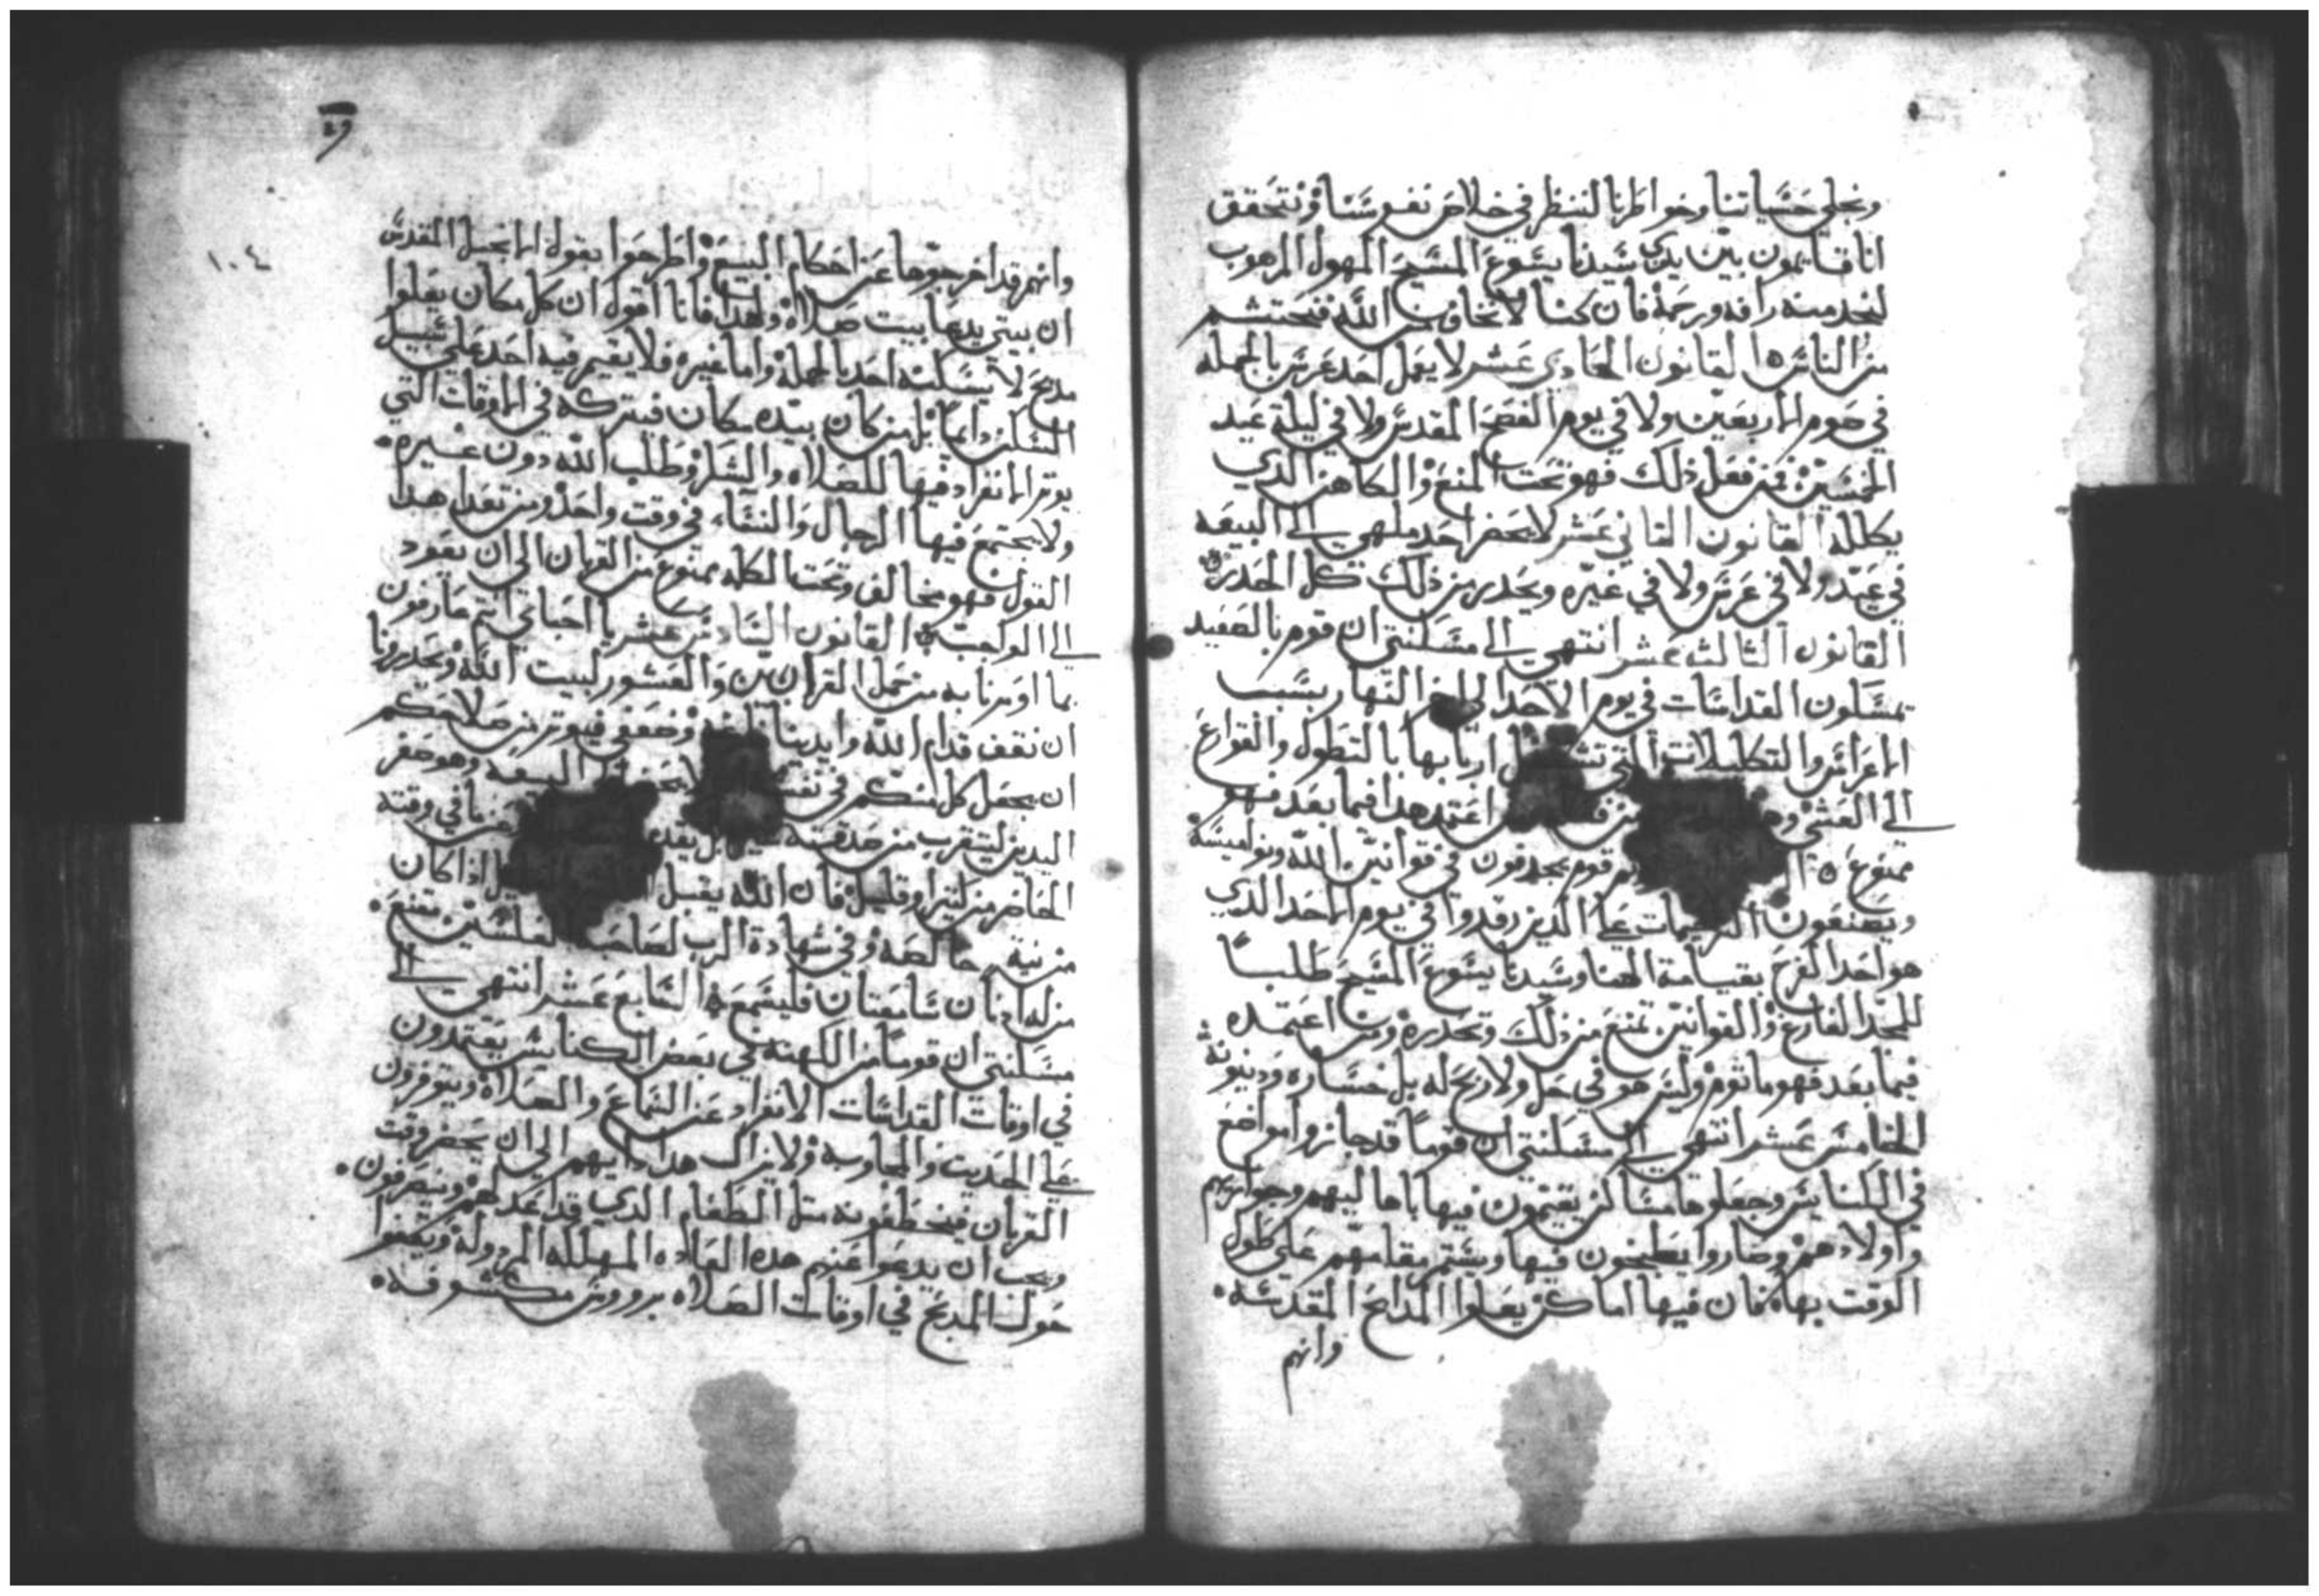 ونجلي حسياتنا وخواطرنا لننظر في خلاص نفوسنا ونتحقق
اننا قايمون بين يدي سيدنا يسوع المسيح المهول المرهوب
لنجد منه رافه ورحمة فان كنا لا نخاف من الله فنحتشم
من الناس القانون الحادي عشر لا يعمل احد عرس بالجملة
في صوم الاربعين ولا في يوم الفصح المقدس ولا في ليلة عيد
الخمسين فمن فعل ذلك فهو تحت المنع والكاهن الذي
يكلله القانون الثاني عشر لا يحضر احد ملهي الى البيعه
في عيد ولا في عرس ولا في غيره ويحدر من ذلك كل الحدر
القانون الثالث عشر انتهي الى مسكنتي ان قوم بالصعيد
يمسكون القداسات في يوم الاحد الي اخر النهار بسبب
الاعراس والتكليلات التي اربابها بالتطول والفراغ
الى العشي اعتمد هدا فيما بعد فهو
ممنوع قوم يجدفون في قوانين الله ونواميسه
ويصنعون الترحيمات على الدين رقدوا في يوم الاحد الدي
هو احد الفرح بقيامة الهنا وسيدنا يسوع المسيح طلباً
للمجد الفارغ والقوانين تمنع من ذلك وتحدره ومن اعتمده
فيما بعد فهو ماثوم وليس هو في حل ولا ربح له بل خساره ودينونه
الخامس عشر انتهي الى مسكنتي ان قوماً قد جازوا مواضع
في الكنايس وجعلوها مساكن يقيمون فيها باهاليهم وجوارهم
واولادهم وصاروا يطبخون فيها ويستم مقامهم على طول
الوقت بها فان فيها اماكن يعلوا المدابح المقدسه
وانهم
١٠٤
وانهم قد اخرجوها عن احكام البيع واطرحوا بقول الانجيل المقدس
ان بيتي يدعا بيت صلاة ولهدا فانا اقول ان كل مكان يعلوا
مدبح لا يسكنه احد بالجملة واما غيره فلا يقيم فيه احد على سبيل
السكن دايماً بل من كان بيده مكان فيتركه في الاوقات التي
يوتر الانفراد فيها للصلاه والشكر وطلب الله دون غيره
ولا يجتمع فيها الرجال والنساء في وقت واحد ومن تعدا هدا
القول فهو مخالف وتحت الكلمه ممنوع من القربان الى ان يعود
الى الواجب القانون السادس عشر يا احباي انتم عارفون
بما اومرنا به من حمل القرابين والعشور لبيت الله ويحدرونا
ان نقف قدام الله وايدينا فيوتر من صلاتكم
ان يجعل كل منكم في نفسه البيعه وهو صفر
اليدين ليتقرب من صدقته في وقته
الحاضر من كتير او قليل فان الله يقبل ادا كان
من نية خالصه وفي شهادة الرب لصاحبة الفلسين مقنع
من له ادنان سامعتان فليسمع السابع عشر انتهي الى
مسكنتي ان قوماً من الكهنه في بعض الكنايس يعتمدون
في اوقات القداسات الانفراد عن السماع والصلاة ويتوفرون
على الحديت والمجاوبة ولا يزال هدا دايبهم الى ان يحضر وقت
القربان فيخطفونه متل الطعام الدي قد اعد لهم وينصرفون
ويجب ان يدعوا عنهم هده العاده المهلكه المردوله ويقفوا
حول المدبح في اوقات الصلاه برووس مكشوفه